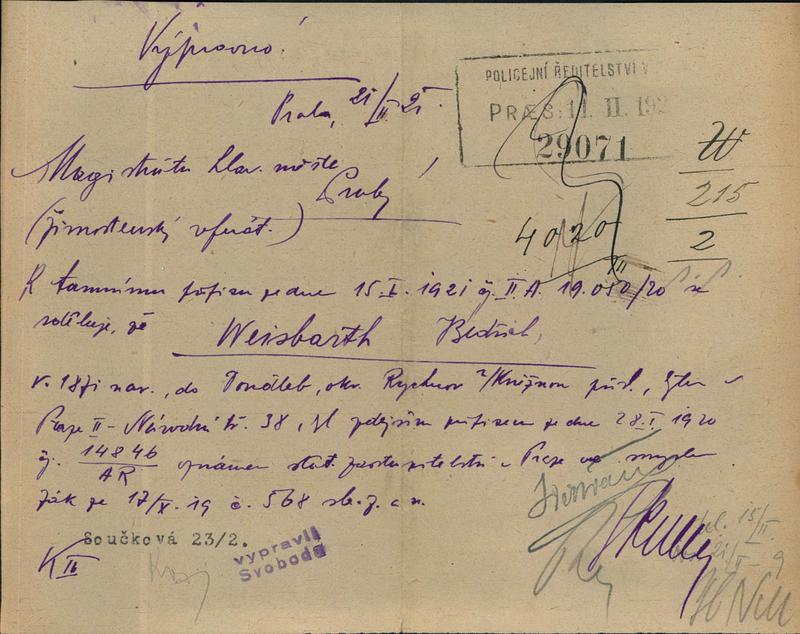 Výpravno.
Praha, 21/II 21.
POLICEJNÍ ŘEDITELSTVÍ V
PRÆS: 11. II. 192
29071
W
215
2
4020
Magistrátu hlav. města
Prahy
(živnostenský referát.)
K tamnímu přípisu ze dne 15.I. 1921 čj. II A. 19.010/20 se
sděluje, že
Weisbarth Bedřich,
v. 1871 nar., do Doudleb, okr. Rychnov n/Kněžnou přísl., bytem v
Praze II - Národní tř. 38, byl zdejším přípisem ze dne 28.I. 1920
čj. 14846/AR oznámen stát. zastupitelství v Praze ve smyslu
zák. ze 17/X. 19 č. 568 sb. z. a n.
Součková 23/2.
vypravil
Svoboda
K II
15/II
21/II